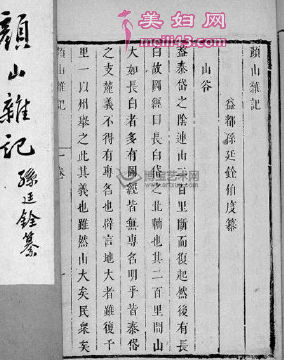 美妇网
meili43.com
顏山雜記
益都孫廷銓伯度纂
山谷
葢泰岱之陰連山二百里斷而復起然後有長
白故圖經曰長白岱之北軸也其二百里間山
大如長白者多有圖經皆無專名明乎皆泰岱
之支麓義不得有專名也辟言地大者雖復千
里一以州舉之此其義也雖然山大矣民衆矣
顏山雜記 一卷
顏山雜記
孫廷銓纂
博宝艺术网